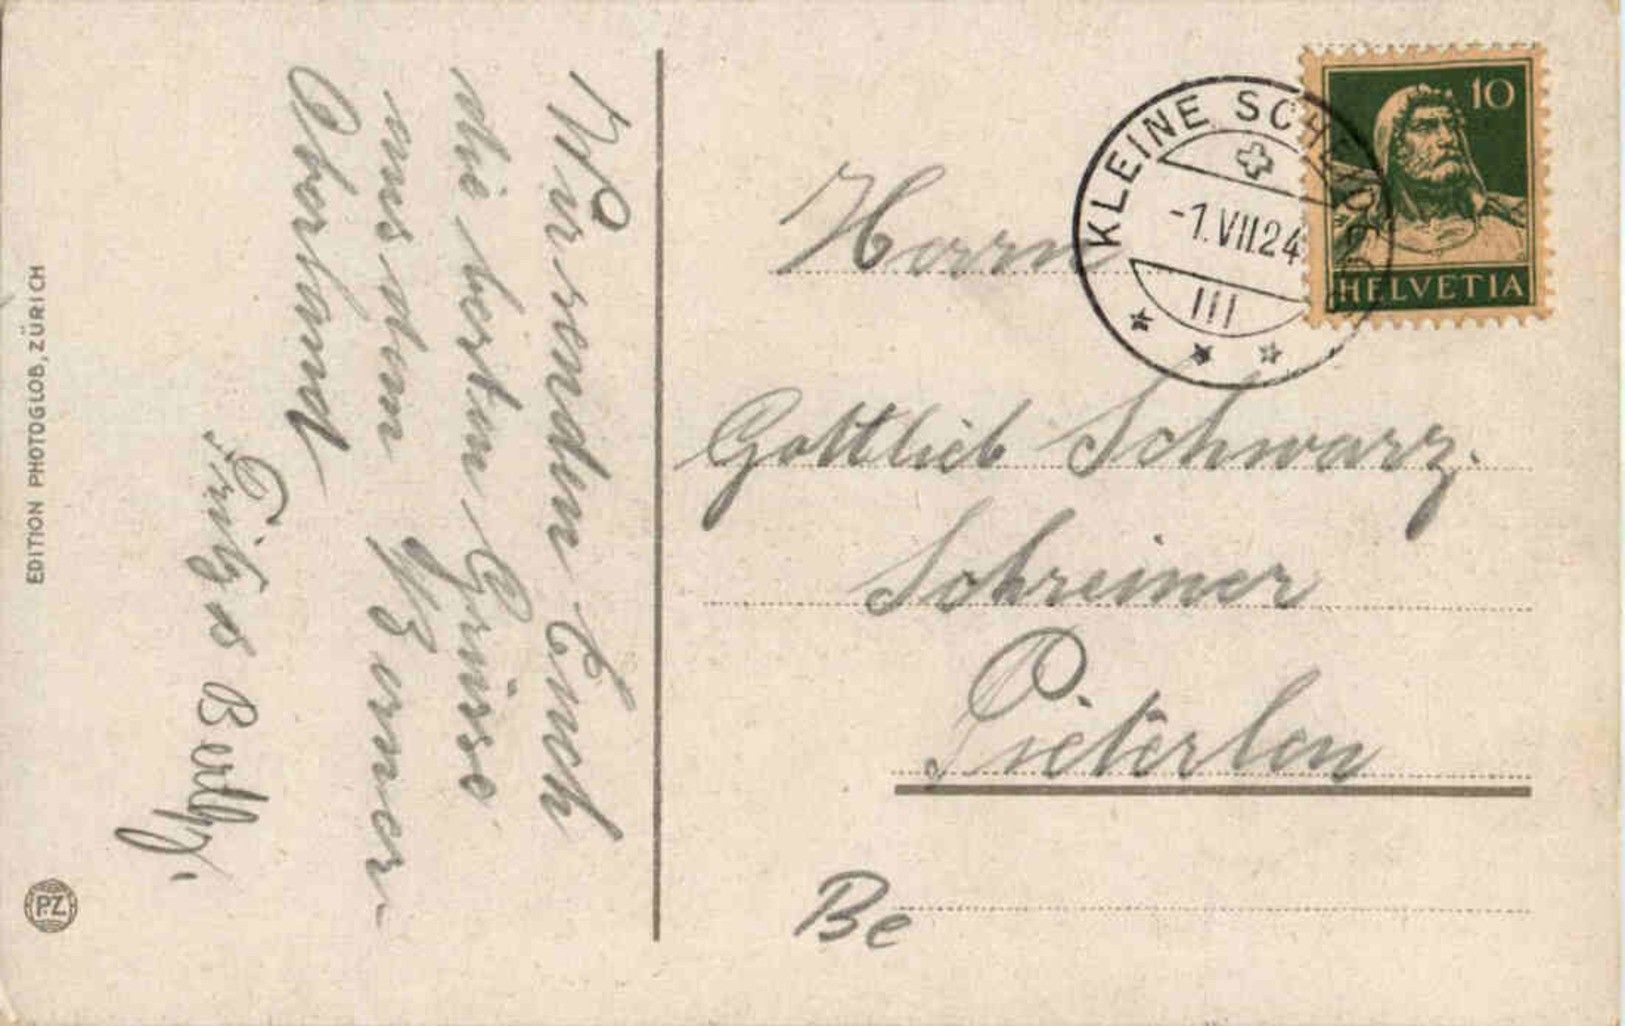 Wir senden Euch
die besten Grüsse
aus dem Berner-
Oberland
Fritz & Berthy.
EDITION PHOTOGLOB, ZÜRICH
P.Z.
KLEINE SCHEIDEGG
-1.VII.24
III
10
HELVETIA
Herrn
Gottlieb Schwarz.
Schreiner
Pieterlen
Be